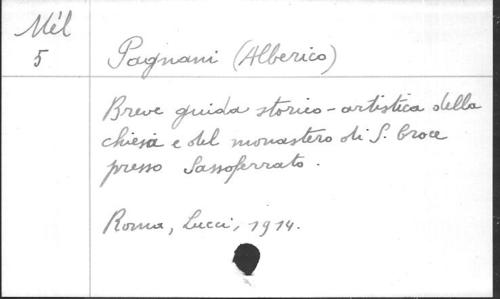 Mél
5
Pagnani (Alberico)
Breve guida storico-artistica della
chiesa e del monastero di S. Croce
presso Sassoferrato.
Roma, Lucci, 1914.